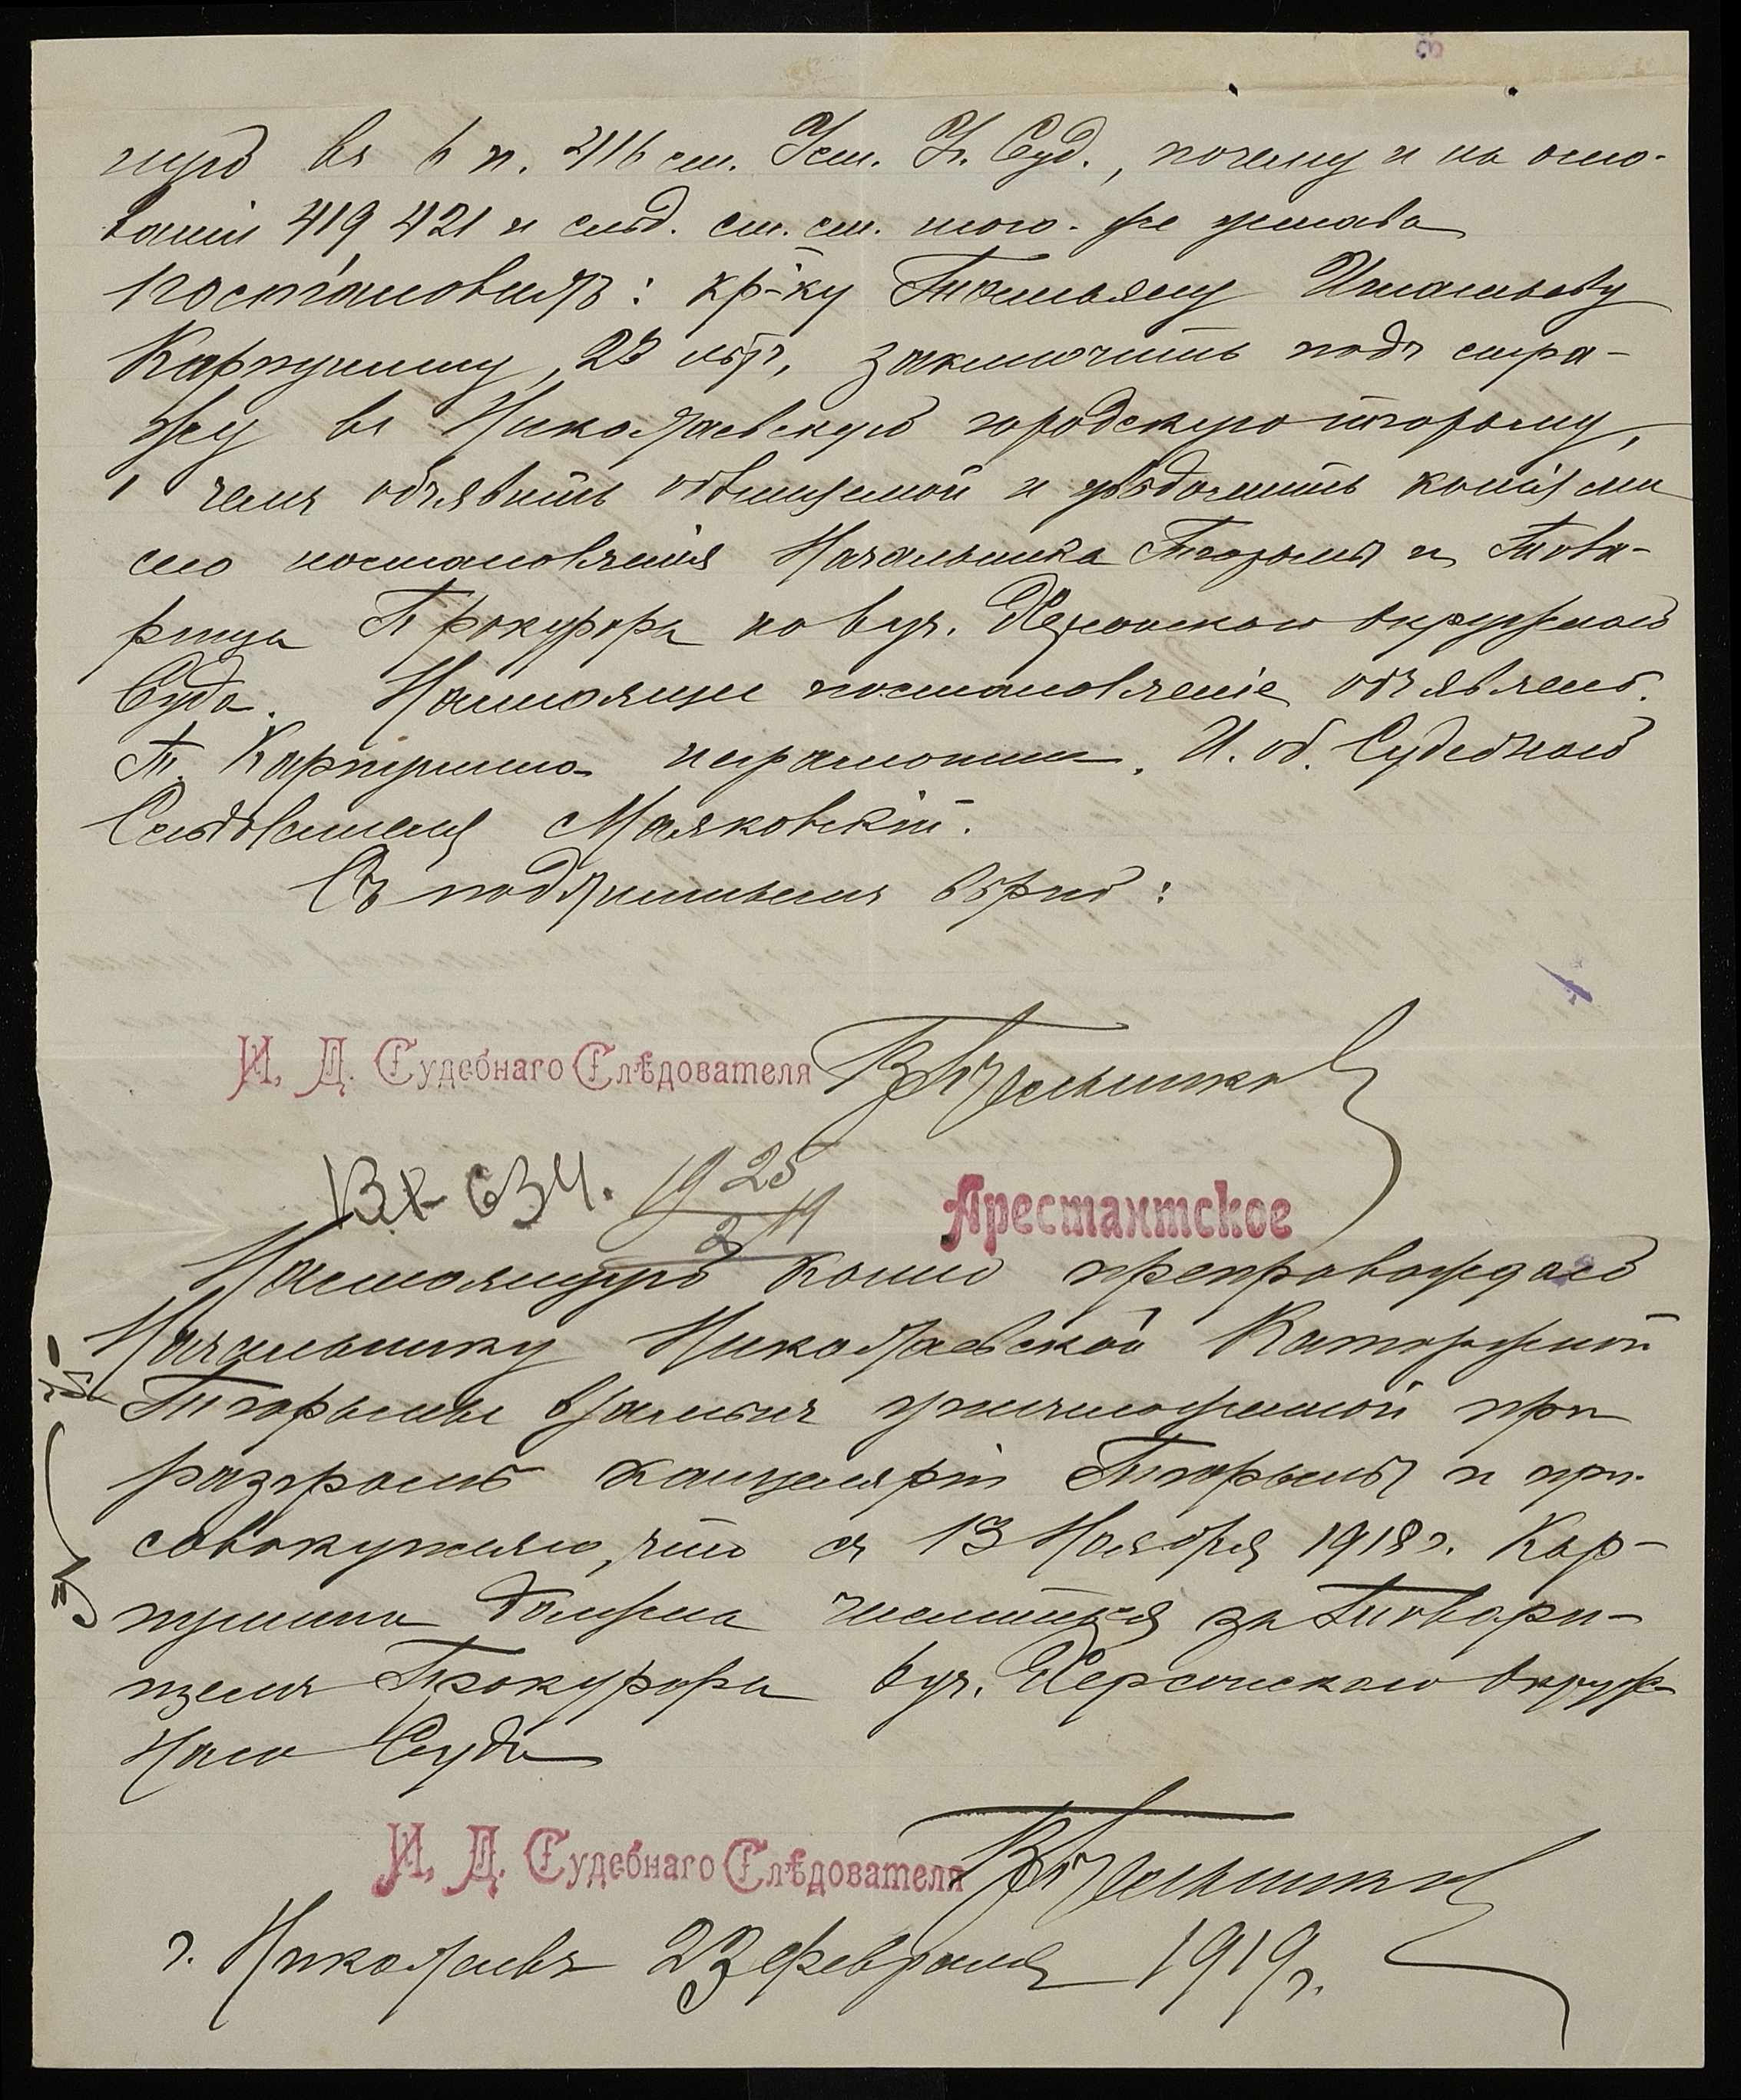 ную въ 6 п. 416 ст. Уст. У. Суд., почему и на осно-
ваніи 419, 421 и слѣд. ст. ст. того-же устава
постановилъ: кр-ку Татьяну Игнатьеву
Карпухину, 23 лѣтъ, заключить подъ стра-
жу въ Николаевскую городскую тюрьму,
о чемъ объявить обвиняемой и увѣдомить копіями
сего постановленія Начальника Тюрьмы и Това-
рища Прокурора по 6 уч. Херсонскаго Окружнаго
Суда. Настоящее постановленіе объявлено.
Т. Карпухина неграмотна. И. об. Судебнаго
Слѣдователя Маяковскій.
Съ подлиннымъ вѣрно:
И. Д. Судебнаго Слѣдователя
Вх 634. 19 25/2 19
Арестантское
Настоящую копію препровождаю
Начальнику Николаевской Каторжной
Тюрьмы взамѣнъ уничтоженной при
разгромѣ канцеляріи Тюрьмы и при-
совокупляю, что съ 13 Ноября 1918 г. Кар-
пухина должна числиться за Товари-
щемъ Прокурора 6 уч. Херсонскаго Окруж-
наго Суда
И. Д. Судебнаго Слѣдователя
г. Николаевъ 23 февраля 1919 г.